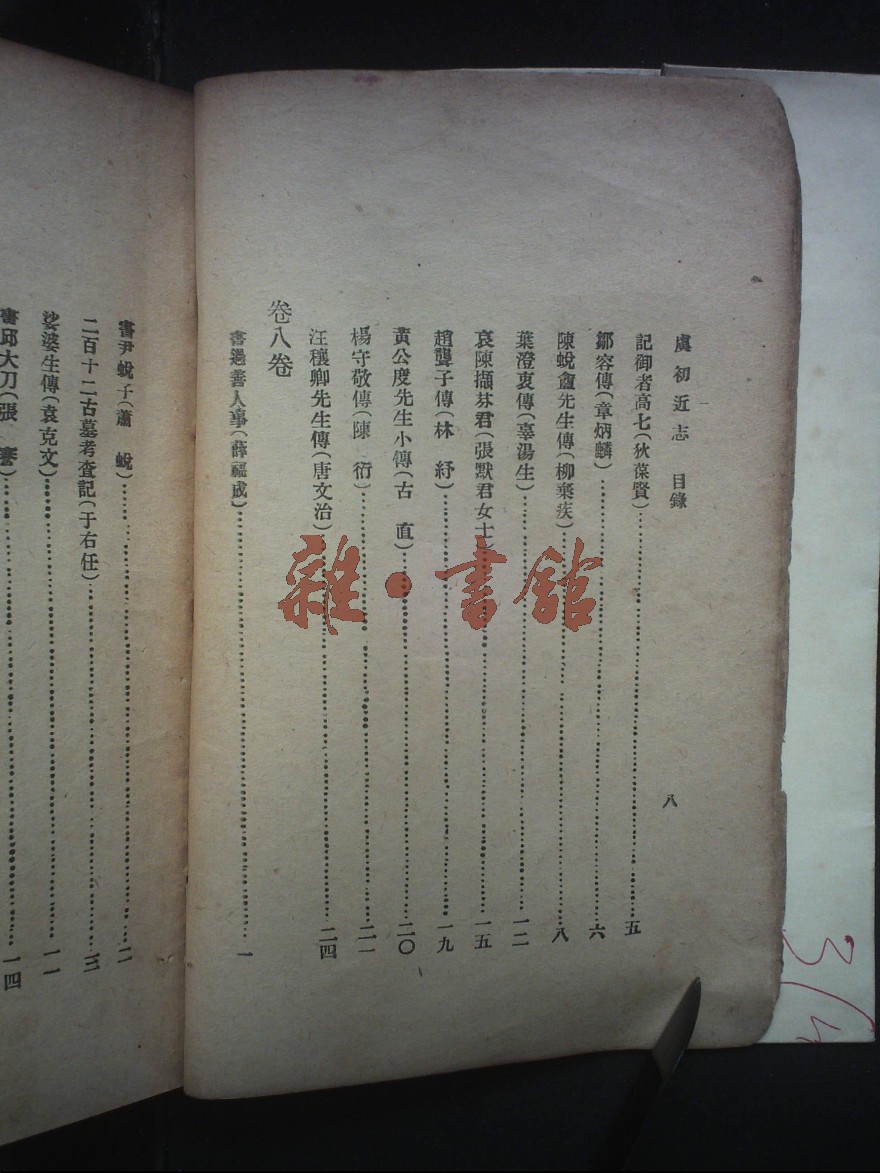 虞初近志　目錄
八
記御者高七(狄葆賢)……五
鄒容傳(章炳麟)……六
陳蛻盦先生傳(柳棄疾)……八
葉澄衷傳(辜湯生)……一二
哀陳擷芬君(張默君女士)……一五
趙聾子傳(林　紓)……一九
黃公度先生小傳(古　直)……二〇
楊守敬傳(陳　衍)……二一
汪穰卿先生傳(唐文治)……二四
卷八卷
書過善人事(薛福成)……一
書尹蛻子(蕭　蛻)……二
二百十二古墓考查記(于右任)……三
娑婆生傳(袁克文)……一一
書邱大刀(張　謇)……一四
雜·書館
3/4